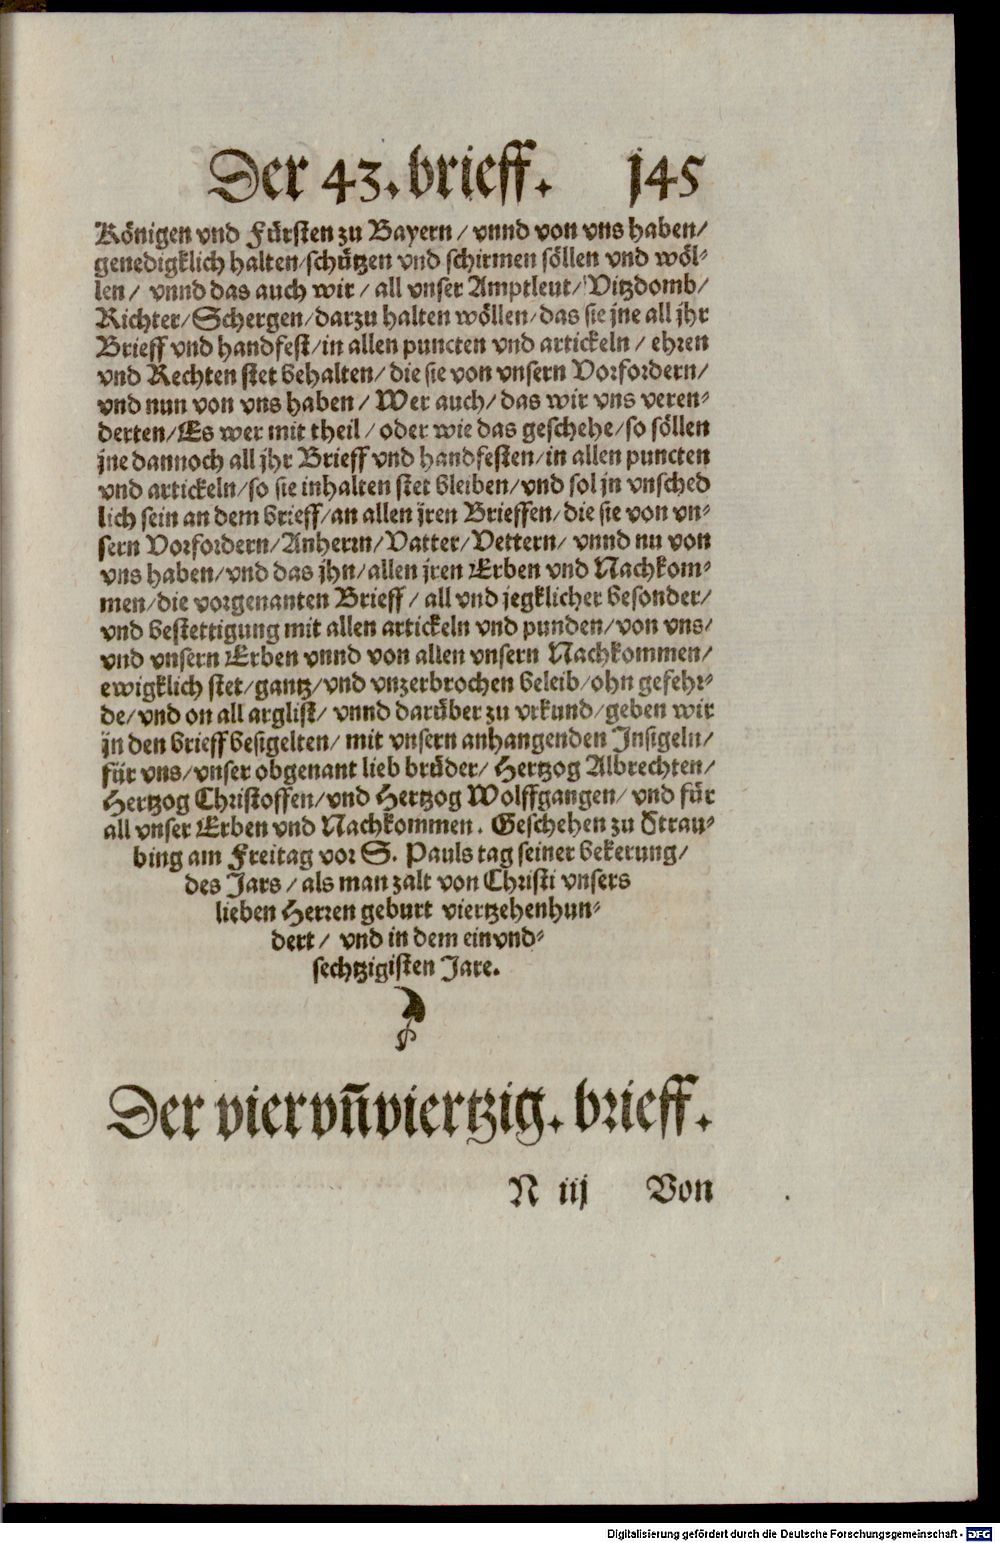 Der 43. brieff. 145
Königen vnd Fürsten zu Bayern / vnnd von vns haben/
genedigklich halten/schützen vnd schirmen söllen vnd wöl-
len / vnnd das auch wir / all vnser Amptleut/ Vitzdomb/
Richter/Schergen/darzu halten wöllen/das sie jne all jhr
Brieff vnd handfest/in allen puncten vnd artickeln / ehren
vnd Rechten stet behalten/ die sie von vnsern Vorfordern/
vnd nun von vns haben / Wer auch/ das wir vns veren-
derten/Es wer mit theil / oder wie das geschehe/so söllen
jne dannoch all jhr Brieff vnd handfesten/in allen puncten
vnd artickeln/so sie inhalten stet bleiben/vnd sol jn vnsched
lich sein an dem brieff/an allen jren Brieffen/die sie von vn-
sern Vorfordern/Anherrn/Vatter/Vettern/ vnnd nu von
vns haben/vnd das jhn/allen jren Erben vnd Nachkom-
men/die vorgenanten Brieff / all vnd jegklicher besonder/
vnd bestettigung mit allen artickeln vnd punden/von vns/
vnd vnsern Erben vnnd von allen vnsern Nachkommen/
ewigklich stet/gantz/vnd vnzerbrochen beleib/ohn gefehr-
de/vnd on all arglist/ vnnd darüber zu vrkund/geben wir
jn den brieff besigelten/ mit vnsern anhangenden Insigeln/
für vns/vnser obgenant lieb brüder/ Hertzog Albrechten/
Hertzog Christoffen/vnd Hertzog Wolffgangen/ vnd für
all vnser Erben vnd Nachkommen. Geschehen zu Strau-
bing am Freitag vor S. Pauls tag seiner bekerung/
des Jars / als man zalt von Christi vnsers
lieben Herren geburt viertzehenhun-
dert / vnd in dem einvnd-
sechtzigisten Jare.
Der viervñviertzig. brieff.
N iij Von
Digitalisierung gefördert durch die Deutsche Forschungsgemeinschaft - DFG